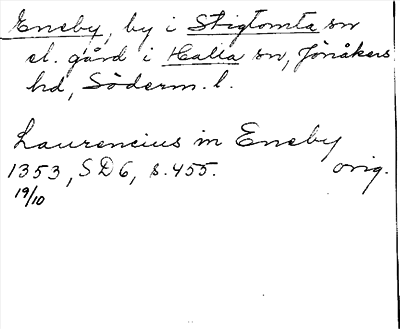 Eneby, by i Stigtomta sn
el. gård i Halla sn, Jönåkers
hd, Söderm. l.
Laurencius in Eneby
1353, SD6, s. 455. orig.
19/10